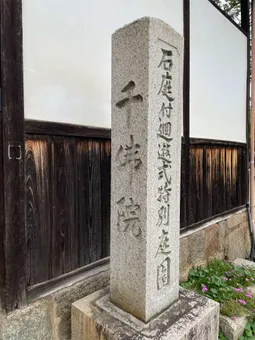 千佛院
石庭付廻遊式特別庭園